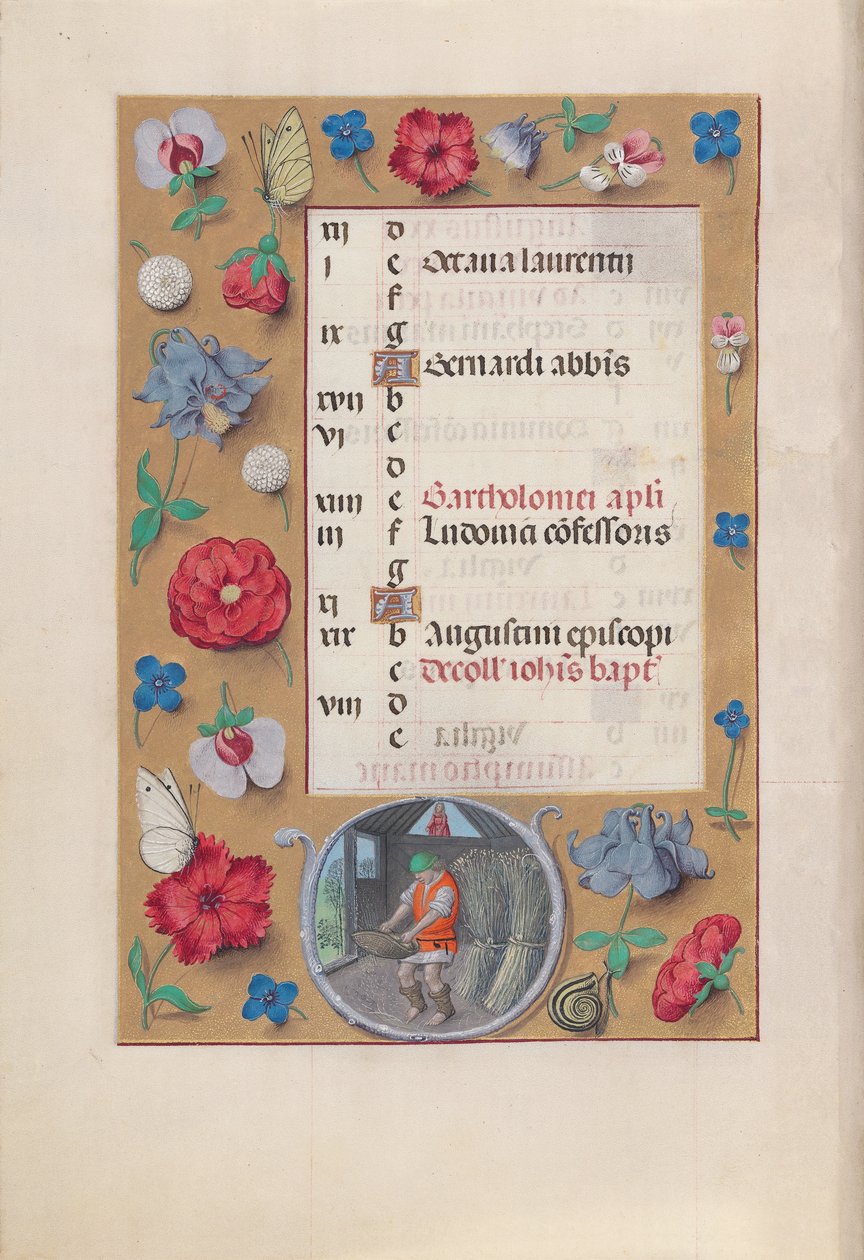 xij d
j e Octaua laurentij
f
ix g
A Bernardi abbis
xvij b
vj c
d
xiiij e Bartholomei apli
iij f Ludouici cōfessoris
g
xj A
xix b Augustini episcopi
c Decoll' iohis bapt'
viij d
e